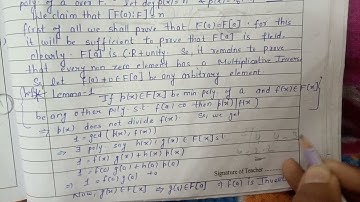 poly of a over F. Let deg p(x) = n
We claim that [F(a):F] = n
first of all we shall prove that F(a) = F[a]. for this
it will be sufficient to prove that F[a] is field.
clearly F[a] is C.R + unity. So, it remains to prove
that every non zero element has a Multiplicative Inverse
So let f(a) ≠ 0 ∈ F[a] be any arbitrary element
Lemma-1 If p(x) ∈ F[x] be min poly of a and f(x) ∈ F[x]
be any other poly s.t f(a) = 0 then p(x) | f(x)
⇒ p(x) does not divide f(x). So, we get
1 = gcd (p(x), f(x))
⇒ ∃ poly say h(x), g(x) ∈ F[x] s.t
1 = f(x) g(x) + h(x) p(x)
⇒ 1 = f(a) g(a) + h(a) p(a)
⇒ 1 = f(a) g(a) + 0
Now, g(x) ∈ F[x] ⇒ g(a) ∈ F[a]
Signature of Teacher